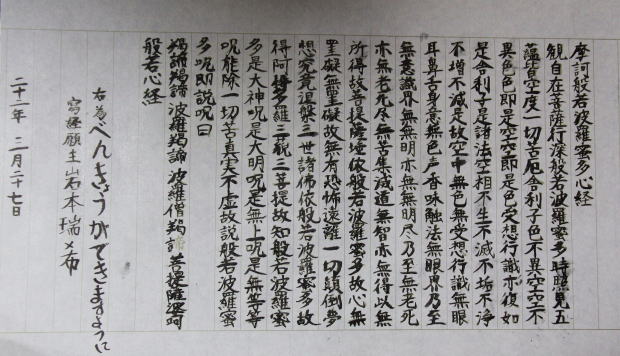 摩訶般若波羅蜜多心経
観自在菩薩行深般若波羅蜜多時照見五
蘊皆空度一切苦厄舎利子色不異空空不
異色色即是空空即是色受想行識亦復如
是舎利子是諸法空相不生不滅不垢不浄
不増不減是故空中無色無受想行識無眼
耳鼻舌身意無色声香味触法無眼界乃至
無意識界無無明亦無無明尽乃至無老死
亦無老死尽無苦集滅道無智亦無得以無
所得故菩提薩埵依般若波羅蜜多故心無
罣礙無罣礙故無有恐怖遠離一切顛倒夢
想究竟涅槃三世諸佛依般若波羅蜜多故
得阿耨多羅三藐三菩提故知般若波羅蜜
多是大神呪是大明呪是無上呪是無等等
呪能除一切苦真実不虚故説般若波羅蜜
多呪即説呪曰
羯諦羯諦 波羅羯諦 波羅僧羯諦 菩提薩婆訶
般若心経
右為べんきょうができますように
写経願主岩本瑞希
二十二年 三月二十七日